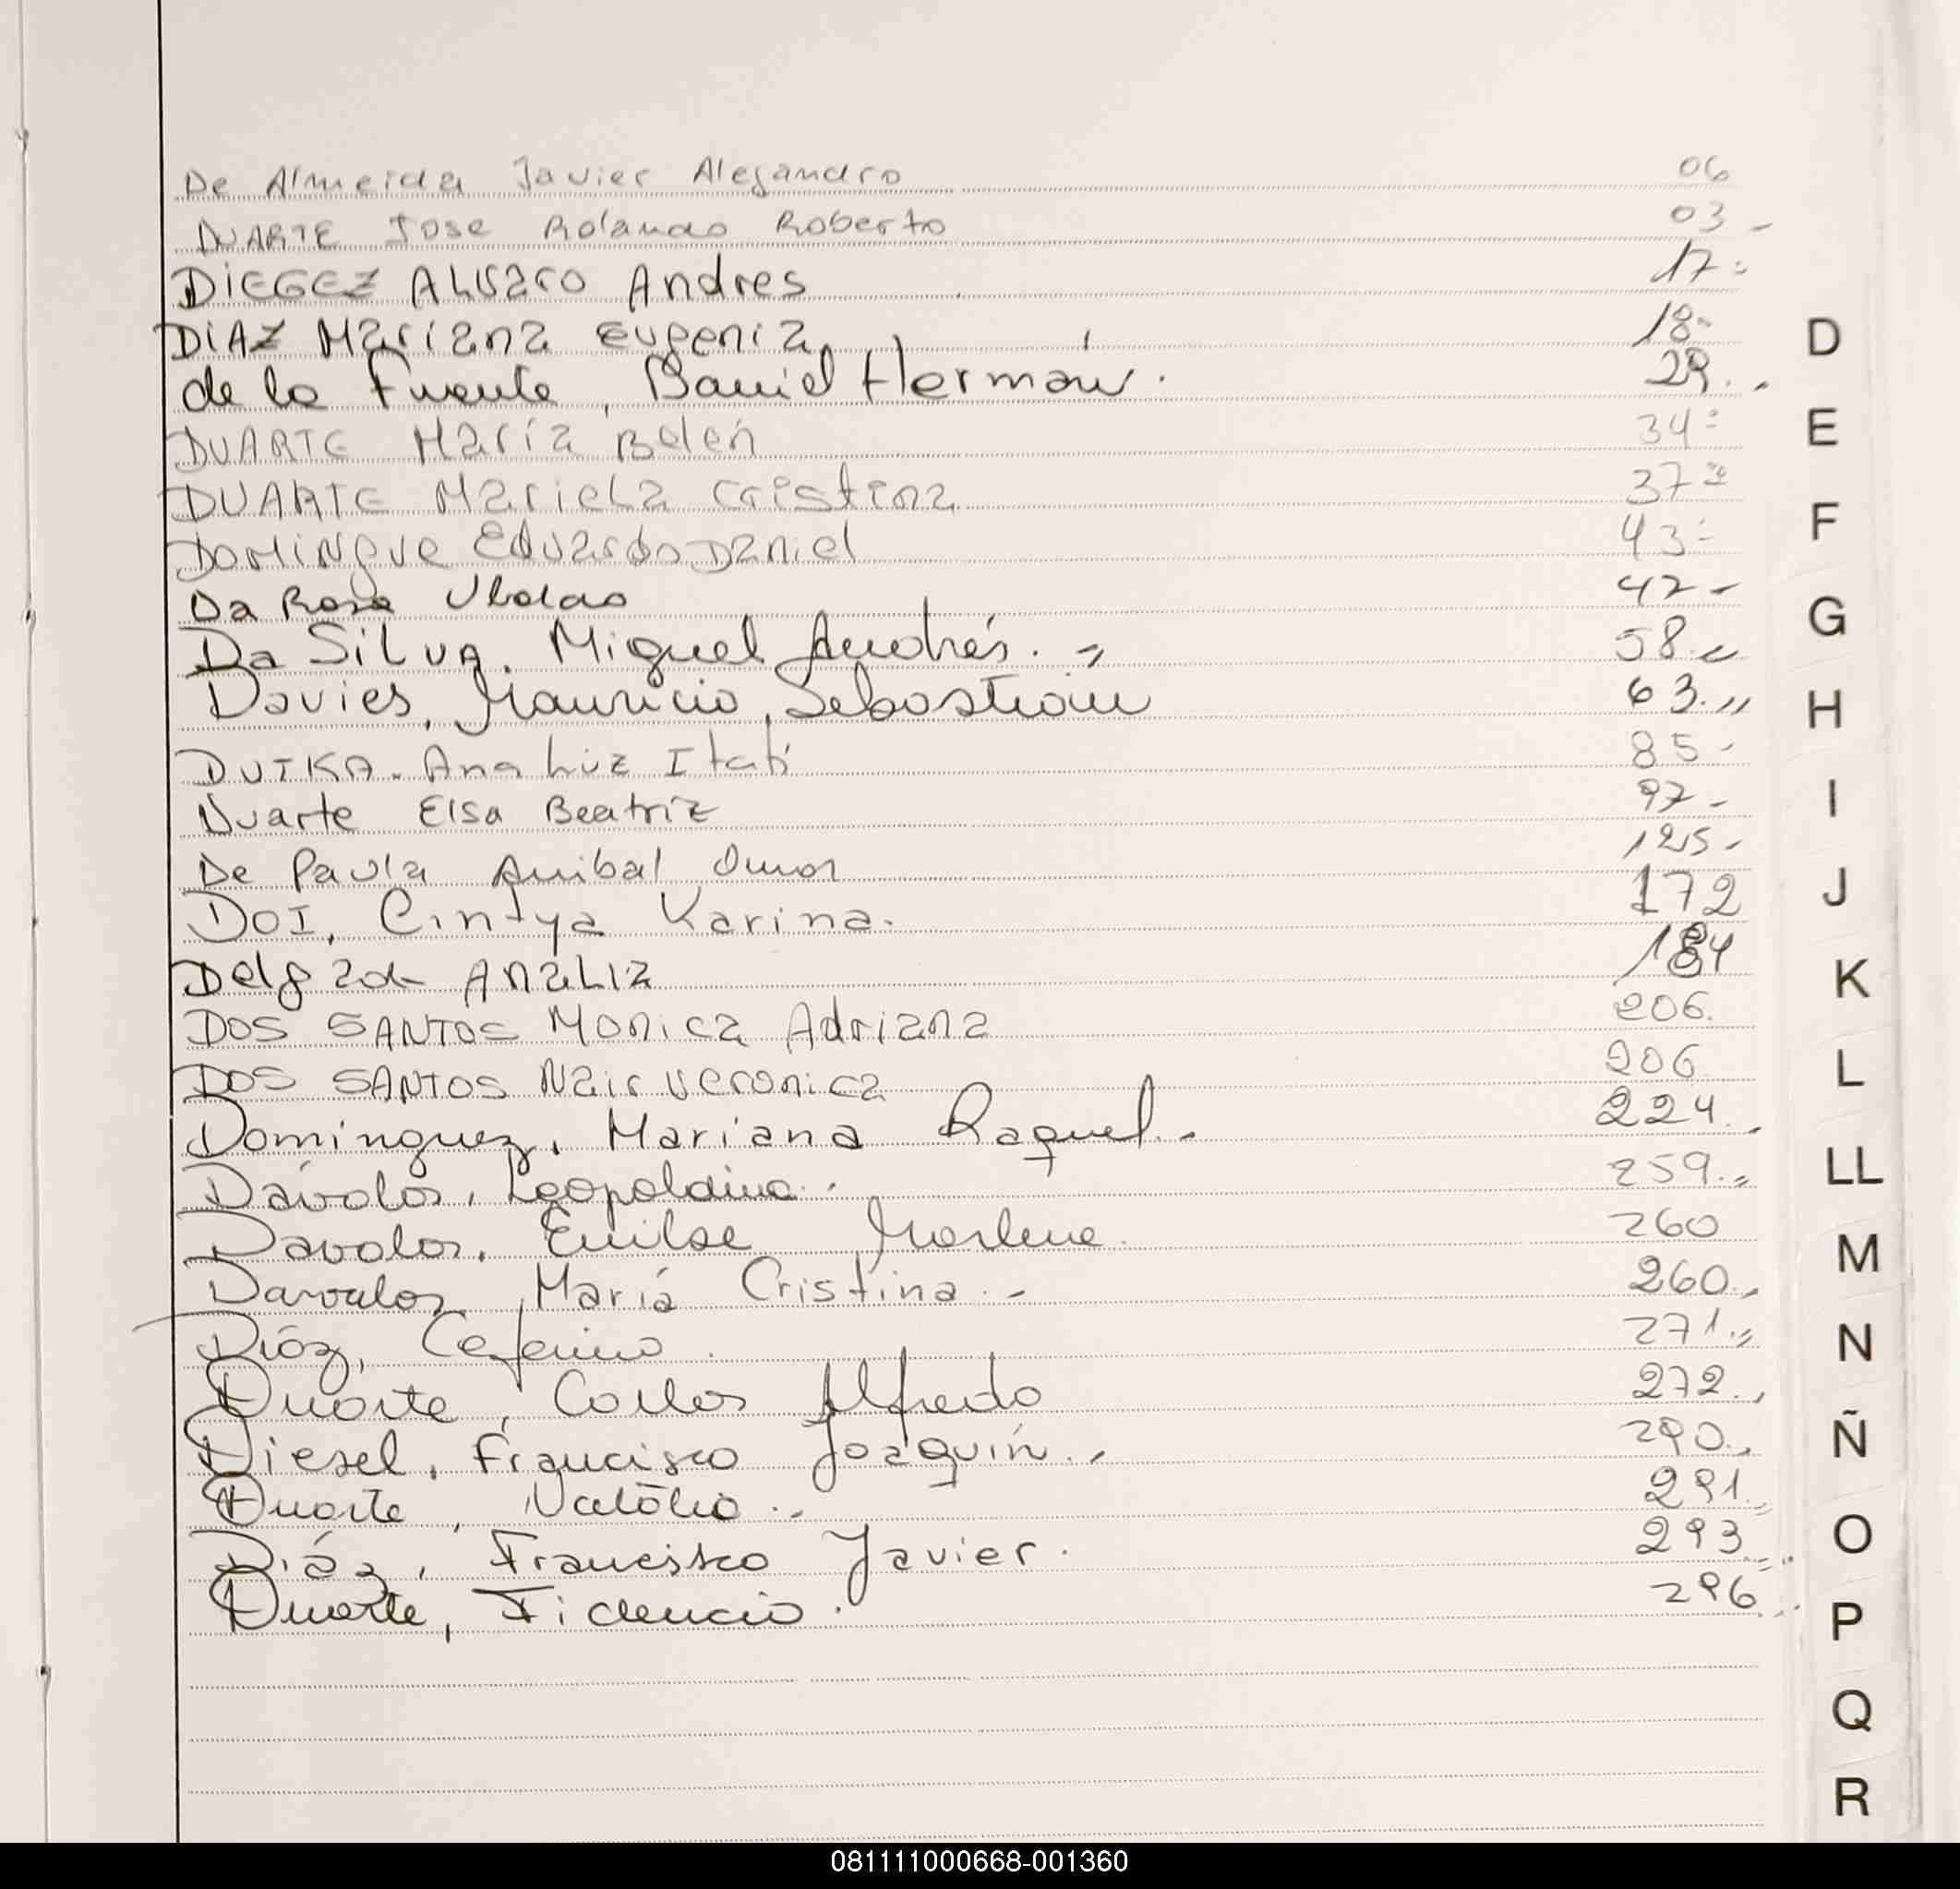 De Almeida Javier Alejandro 06
DUARTE Jose Rolando Roberto 03 -
DIEGEZ ALVARO Andres 17 -
DIAZ Mariana Eugenia 18 -
de la Fuente, Daniel Hernán. 29.
DUARTE María Belén 34 -
DUARTE Mariela Cristina 37
DOMINGUE Eduardo Daniel 43 -
Da Rosa Ubaldo 42 -
Da SiLVA. Miguel Andrés. 58.
Davies, Mauricio, Sebastián 63.
DUTKA. Ana Luz Itatí 85 -
Duarte Elsa Beatriz 97 -
De Paula Anibal Omar 125 -
DOI, Cintya Karina. 172
Delgado ANALIA 184
DOS SANTOS Monica Adriana 206.
DOS SANTOS Nair Veronica 206
Dominguez, Mariana Raquel. 224.
Dávalos, Leopoldina. 259.
Davalos, Emilse Marlene. 260
Davalos, María Cristina. 260.
Diáz, Ceferino. 271.
Duarte, Carlos Alfredo 272.
Diesel, Francisco Joaquín. 290.
Duarte, 291.
Diáz, Francisco Javier. 293
Duarte, Fidencio. 296
D
E
F
G
H
I
J
K
L
LL
M
N
Ñ
O
P
Q
R
081111000668-001360